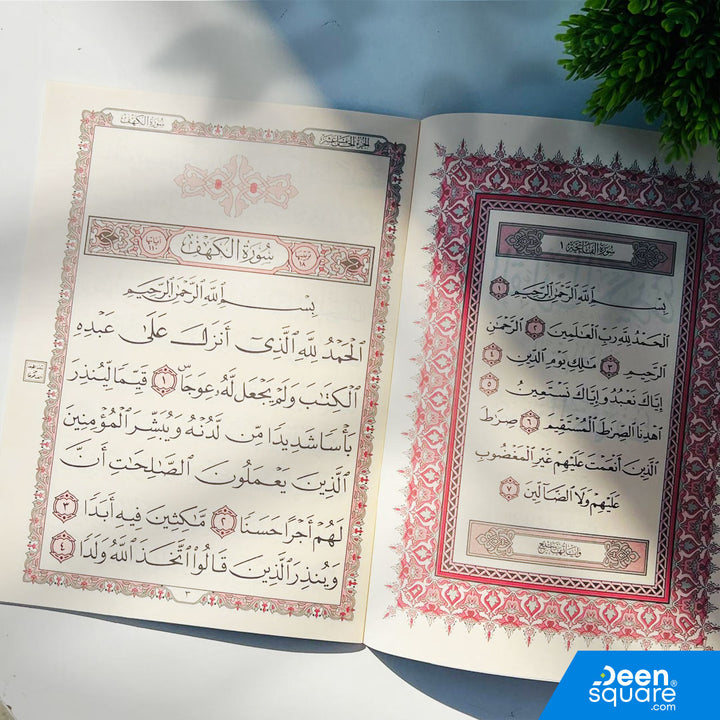 سُورَةُ الفَاتِحَةِ ١
بِسْمِ ٱللَّهِ ٱلرَّحْمَٰنِ ٱلرَّحِيمِ ١
ٱلْحَمْدُ لِلَّهِ رَبِّ ٱلْعَٰلَمِينَ ٢ ٱلرَّحْمَٰنِ
ٱلرَّحِيمِ ٣ مَٰلِكِ يَوْمِ ٱلدِّينِ ٤
إِيَّاكَ نَعْبُدُ وَإِيَّاكَ نَسْتَعِينُ ٥
ٱهْدِنَا ٱلصِّرَٰطَ ٱلْمُسْتَقِيمَ ٦ صِرَٰطَ
ٱلَّذِينَ أَنْعَمْتَ عَلَيْهِمْ غَيْرِ ٱلْمَغْضُوبِ
عَلَيْهِمْ وَلَا ٱلضَّآلِّينَ ٧
الجُزْءُ الخَامِسَ عَشَرَ
سُورَةُ الكَهْفِ
سُورَةُ الكَهْفِ
بِسْمِ ٱللَّهِ ٱلرَّحْمَٰنِ ٱلرَّحِيمِ
ٱلْحَمْدُ لِلَّهِ ٱلَّذِىٓ أَنزَلَ عَلَىٰ عَبْدِهِ
ٱلْكِتَٰبَ وَلَمْ يَجْعَل لَّهُۥ عِوَجَا ۜ ١ قَيِّمًا لِّيُنذِرَ
بَأْسًا شَدِيدًا مِّن لَّدُنْهُ وَيُبَشِّرَ ٱلْمُؤْمِنِينَ
ٱلَّذِينَ يَعْمَلُونَ ٱلصَّٰلِحَٰتِ أَنَّ
لَهُمْ أَجْرًا حَسَنًا ٢ مَّٰكِثِينَ فِيهِ أَبَدًا ٣
وَيُنذِرَ ٱلَّذِينَ قَالُوا۟ ٱتَّخَذَ ٱللَّهُ وَلَدًا ٤
٣
Deen
square®
.com